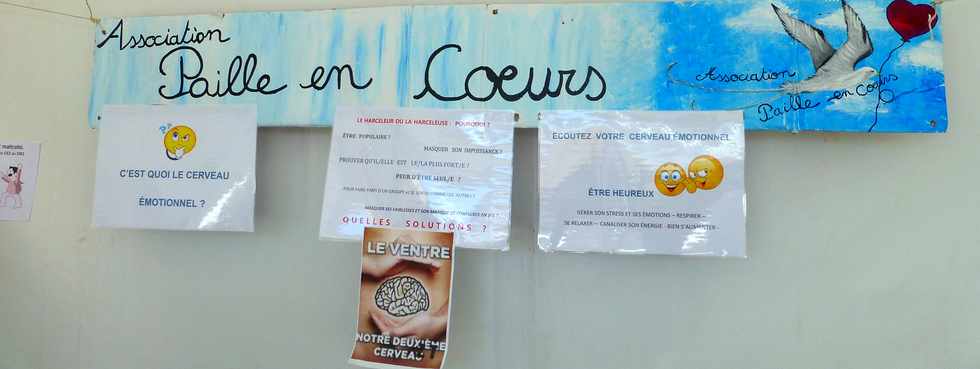 Association
Paille en Coeurs
Association
Paille en Coeurs
C'EST QUOI LE CERVEAU
ÉMOTIONNEL ?
LE HARCELEUR OU LA HARCELEUSE : POURQUOI ?
ÊTRE POPULAIRE ?
MASQUER SON IMPUISSANCE ?
PROUVER QU'IL/ELLE EST LE/LA PLUS FORT/E ?
PEUR D'ÊTRE SEUL/E ?
POUR FAIRE PARTI D'UN GROUPE
MASQUER SES FAIBLESSES ET SON MANQUE DE CONFIANCE EN SOI ?
QUELLES SOLUTIONS ?
ECOUTEZ VOTRE CERVEAU ÉMOTIONNEL
ÊTRE HEUREUX
GÉRER SON STRESS ET SES ÉMOTIONS – RESPIRER –
SE RELAXER – CANALISER SON ÉNERGIE - BIEN S'ALIMENTER -
LE VENTRE
NOTRE DEUXIÈME
CERVEAU